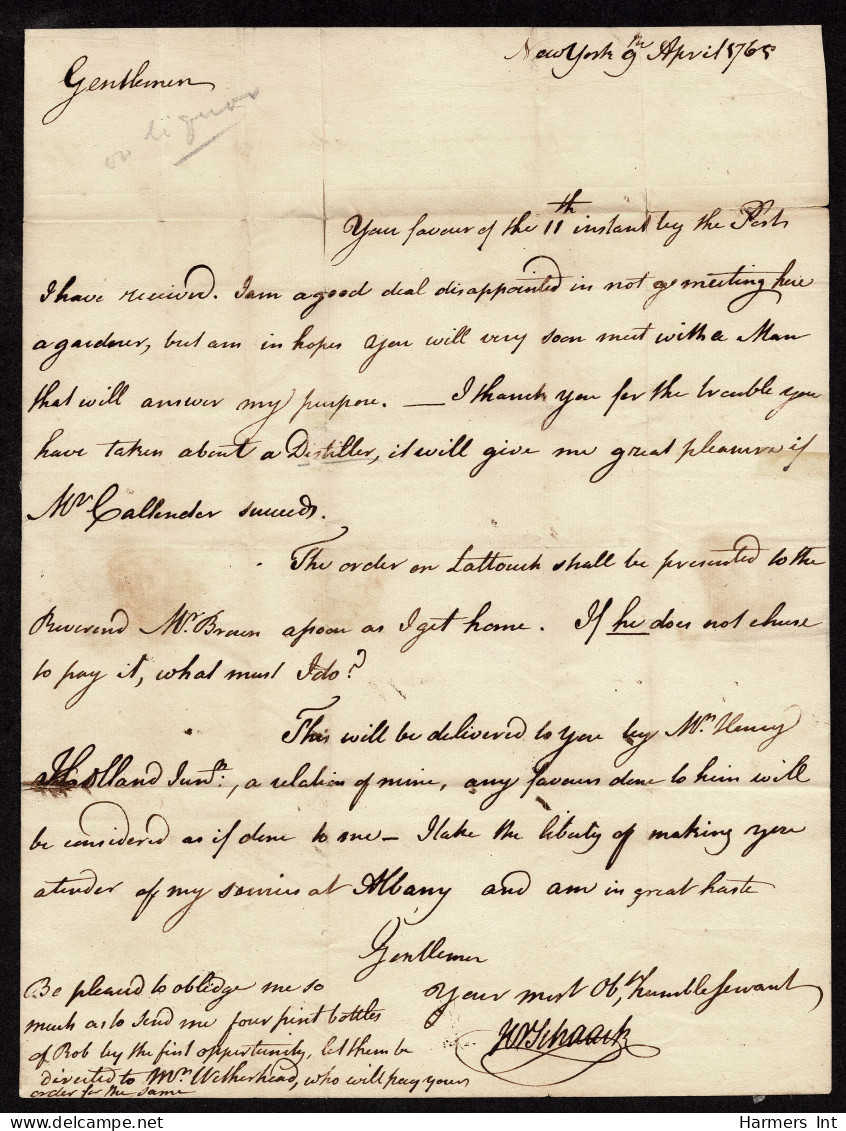 New York 9th April 1765
Gentlemen
on liquor
Your favour of the 11th instant by the Post
I have received. I am a good deal disappointed in not meeting here
a gardner, but am in hopes you will very soon meet with a Man
that will answer my purpose. — I thank you for the trouble you
have taken about a Distiller, it will give me great pleasure if
Mr Callender succeeds.
The order on Lattouch shall be presented to the
Reverend Mr Brown as soon as I get home. If he does not chuse
to pay it, what must I do?
This will be delivered to you by Mr Henry
Holland Junr:, a relation of mine, any favours done to him will
be considered as if done to me — I take the liberty of making you
a tender of my services at Albany and am in great haste
Gentlemen
Your most Obt humble Servant
HVSchaack
Be pleased to oblidge me so
much as to send me four pint bottles
of Rob by the first opportunity, let them be
directed to Mr Wetherhead, who will pay your
order for the same
Harmers Int